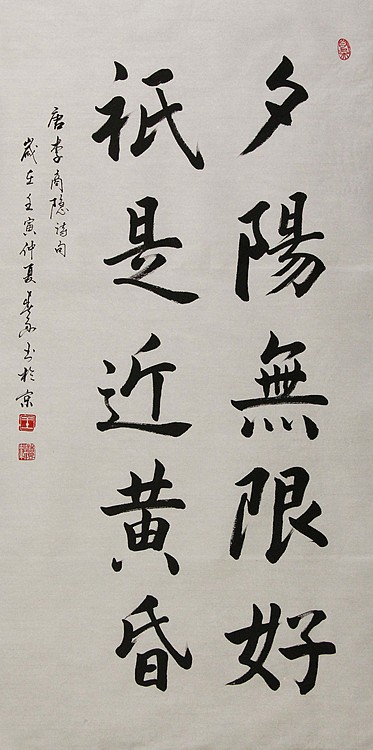 夕陽無限好
祇是近黄昏
唐李商隐诗句
歲在壬寅仲夏書於京